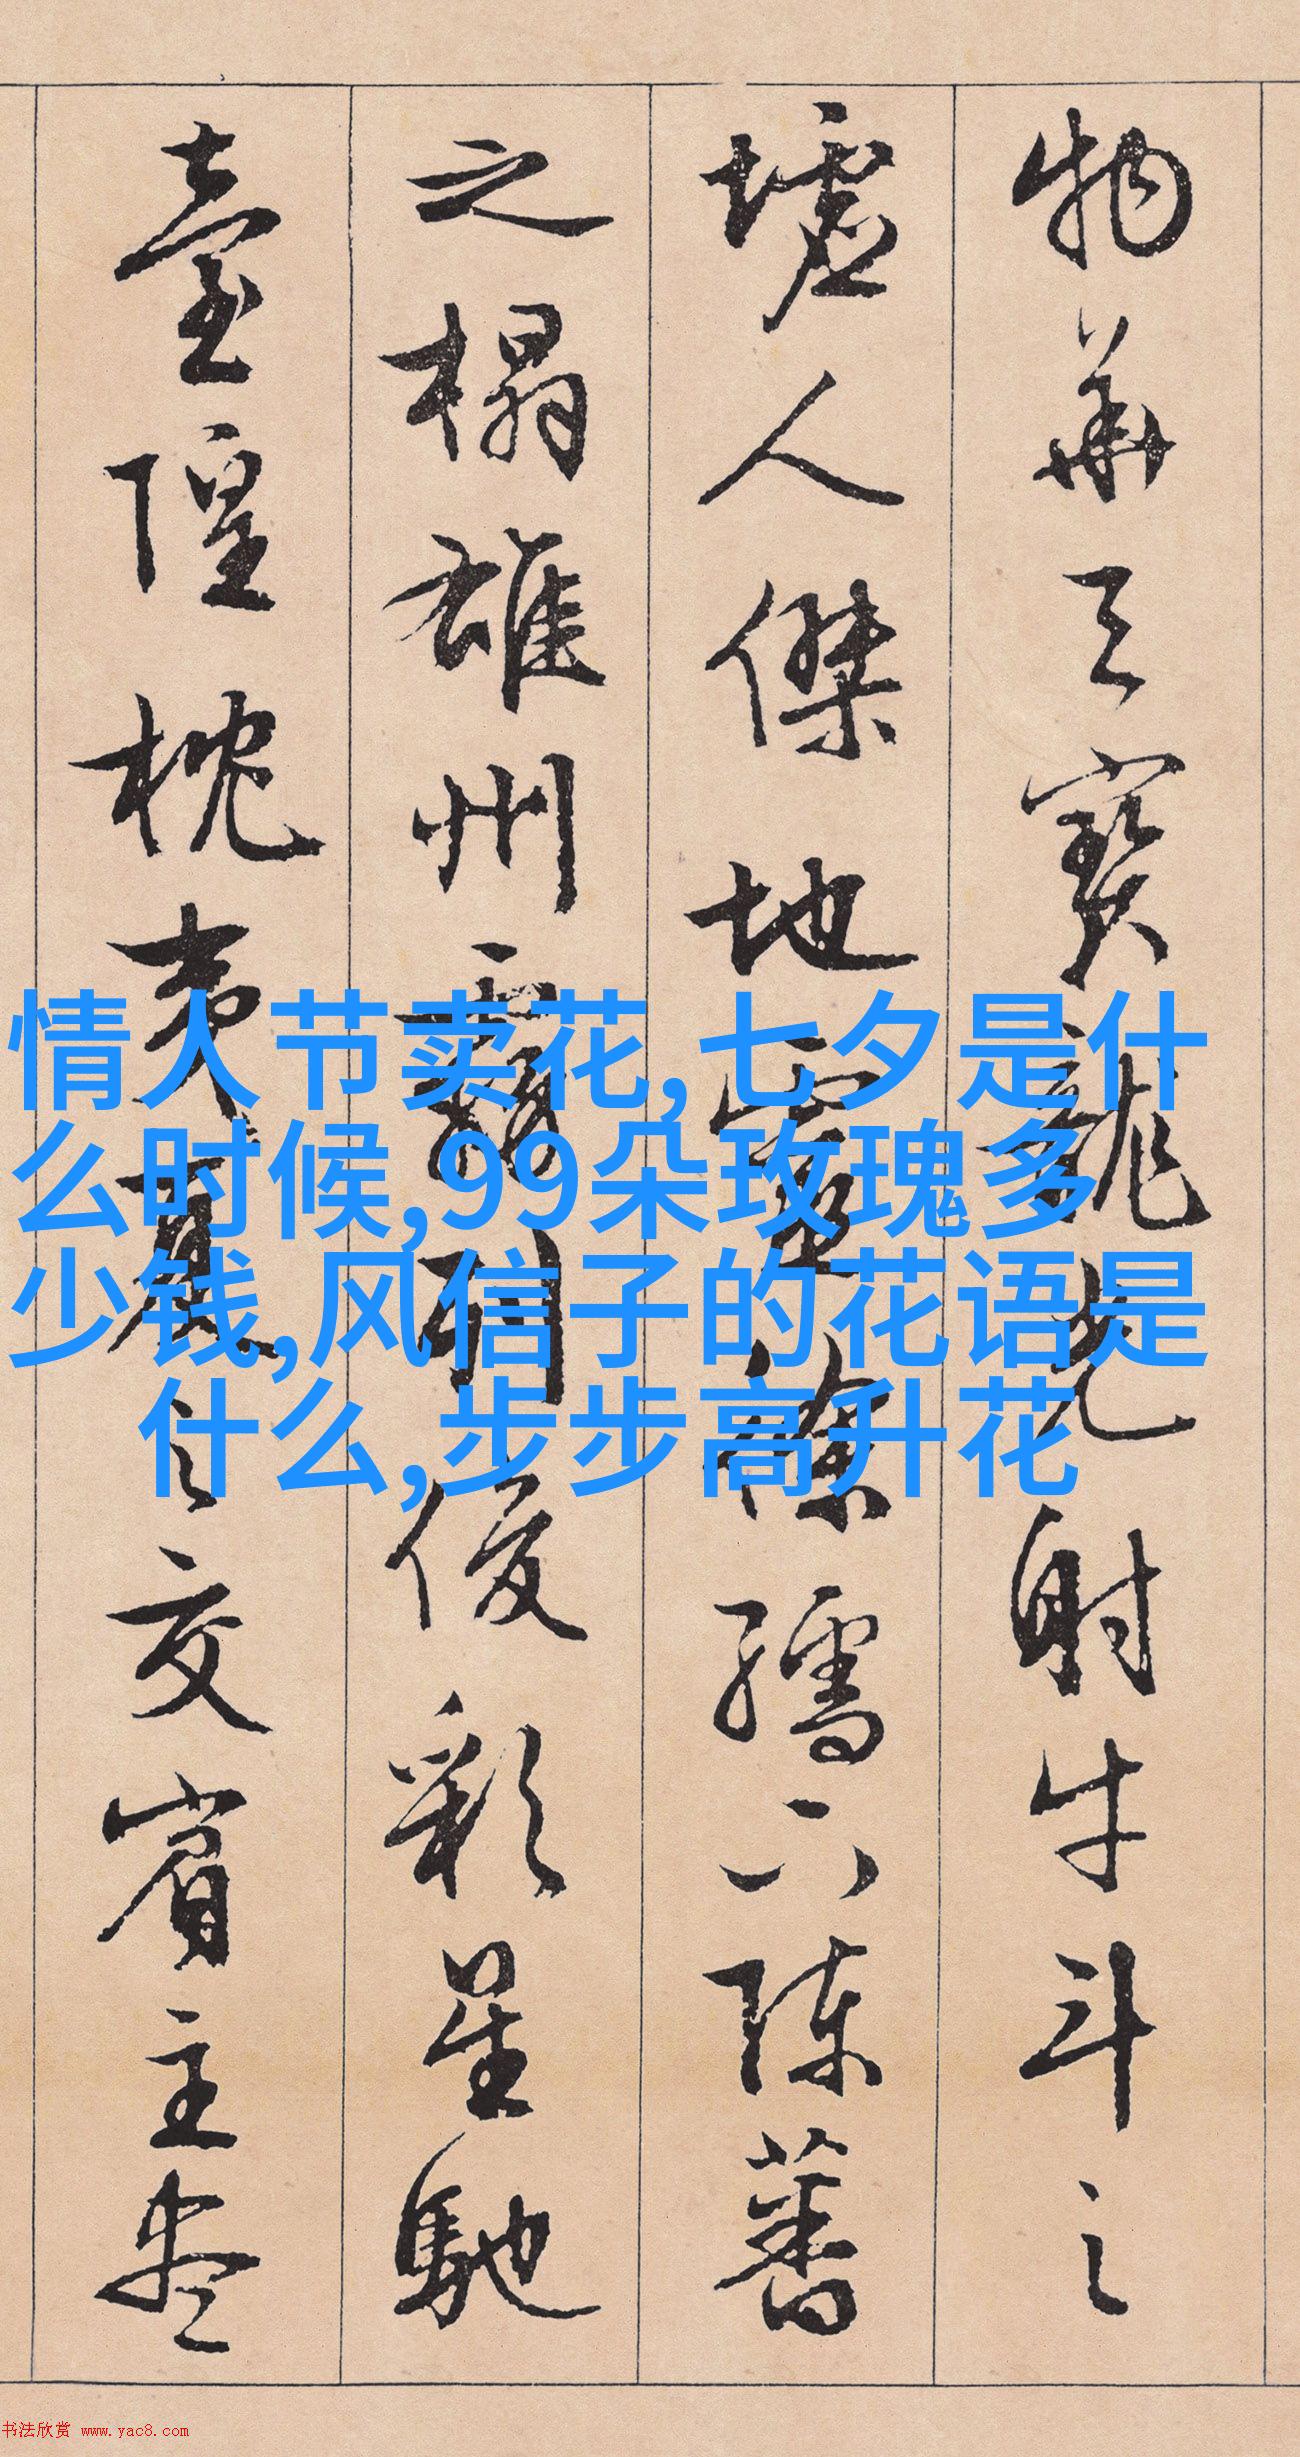 物华天宝龙光射牛斗之
墟人傑地靈徐孺下陈蕃
之榻雄州霧列俊彩星馳
臺隍枕夷夏之交賓主盡
情人节卖花,七夕是什
么时候,99朵玫瑰多
少钱,风信子的花语是
什么,步步高升花
书法欣赏 www.yac8.com